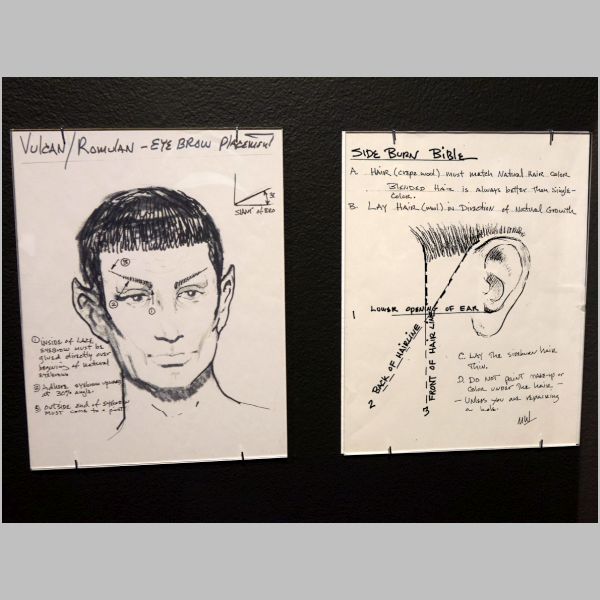 VULCAN/ROMULAN - EYE BROW PLACEMENT
SLANT of BRO
① INSIDE of LACE
EYEBROW MUST BE
glued directly over
beginning of natural
eyebrow
② Adhere eyebrow upward
at 30% angle.
3. outside end of eyebrow
MUST come to a point
③
②
①
SIDE BURN BIBLE
A. HAIR (crepe wool) must match Natural Hair color
Blended Hair is always better than single-
color.
B. LAY HAIR (wool) in Direction of Natural Growth
1 LOWER OPENING OF EAR
2 BACK OF HAIRLINE
3 FRONT OF HAIR LINE
C. LAY THE SIDEBURN HAIR
THIN.
D. DO NOT paint make-up or
color under the hair -
- Unless you are repairing
a hole.